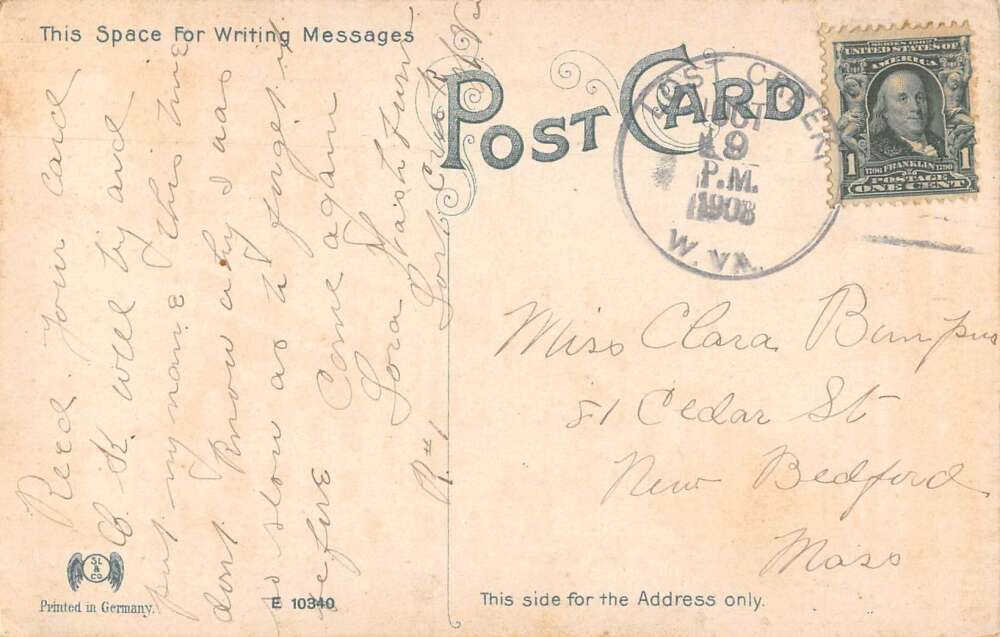 This Space For Writing Messages
POST CARD
LOST CREEK
OCT
19
P.M.
1908
W. VA.
SERIES 1902
UNITED STATES OF
AMERICA
1 1706 FRANKLIN 1790 1
POSTAGE
ONE CENT
Recd your card
O. K. will try and
put my name this time
dont know why I was
so slow as to forget it
before
Come again
Lora
R#1 Lost Creek W Va
Miss Clara Bumpus
81 Cedar St
New Bedford
Mass
SL
&
CO
Printed in Germany.
E 10340
This side for the Address only.